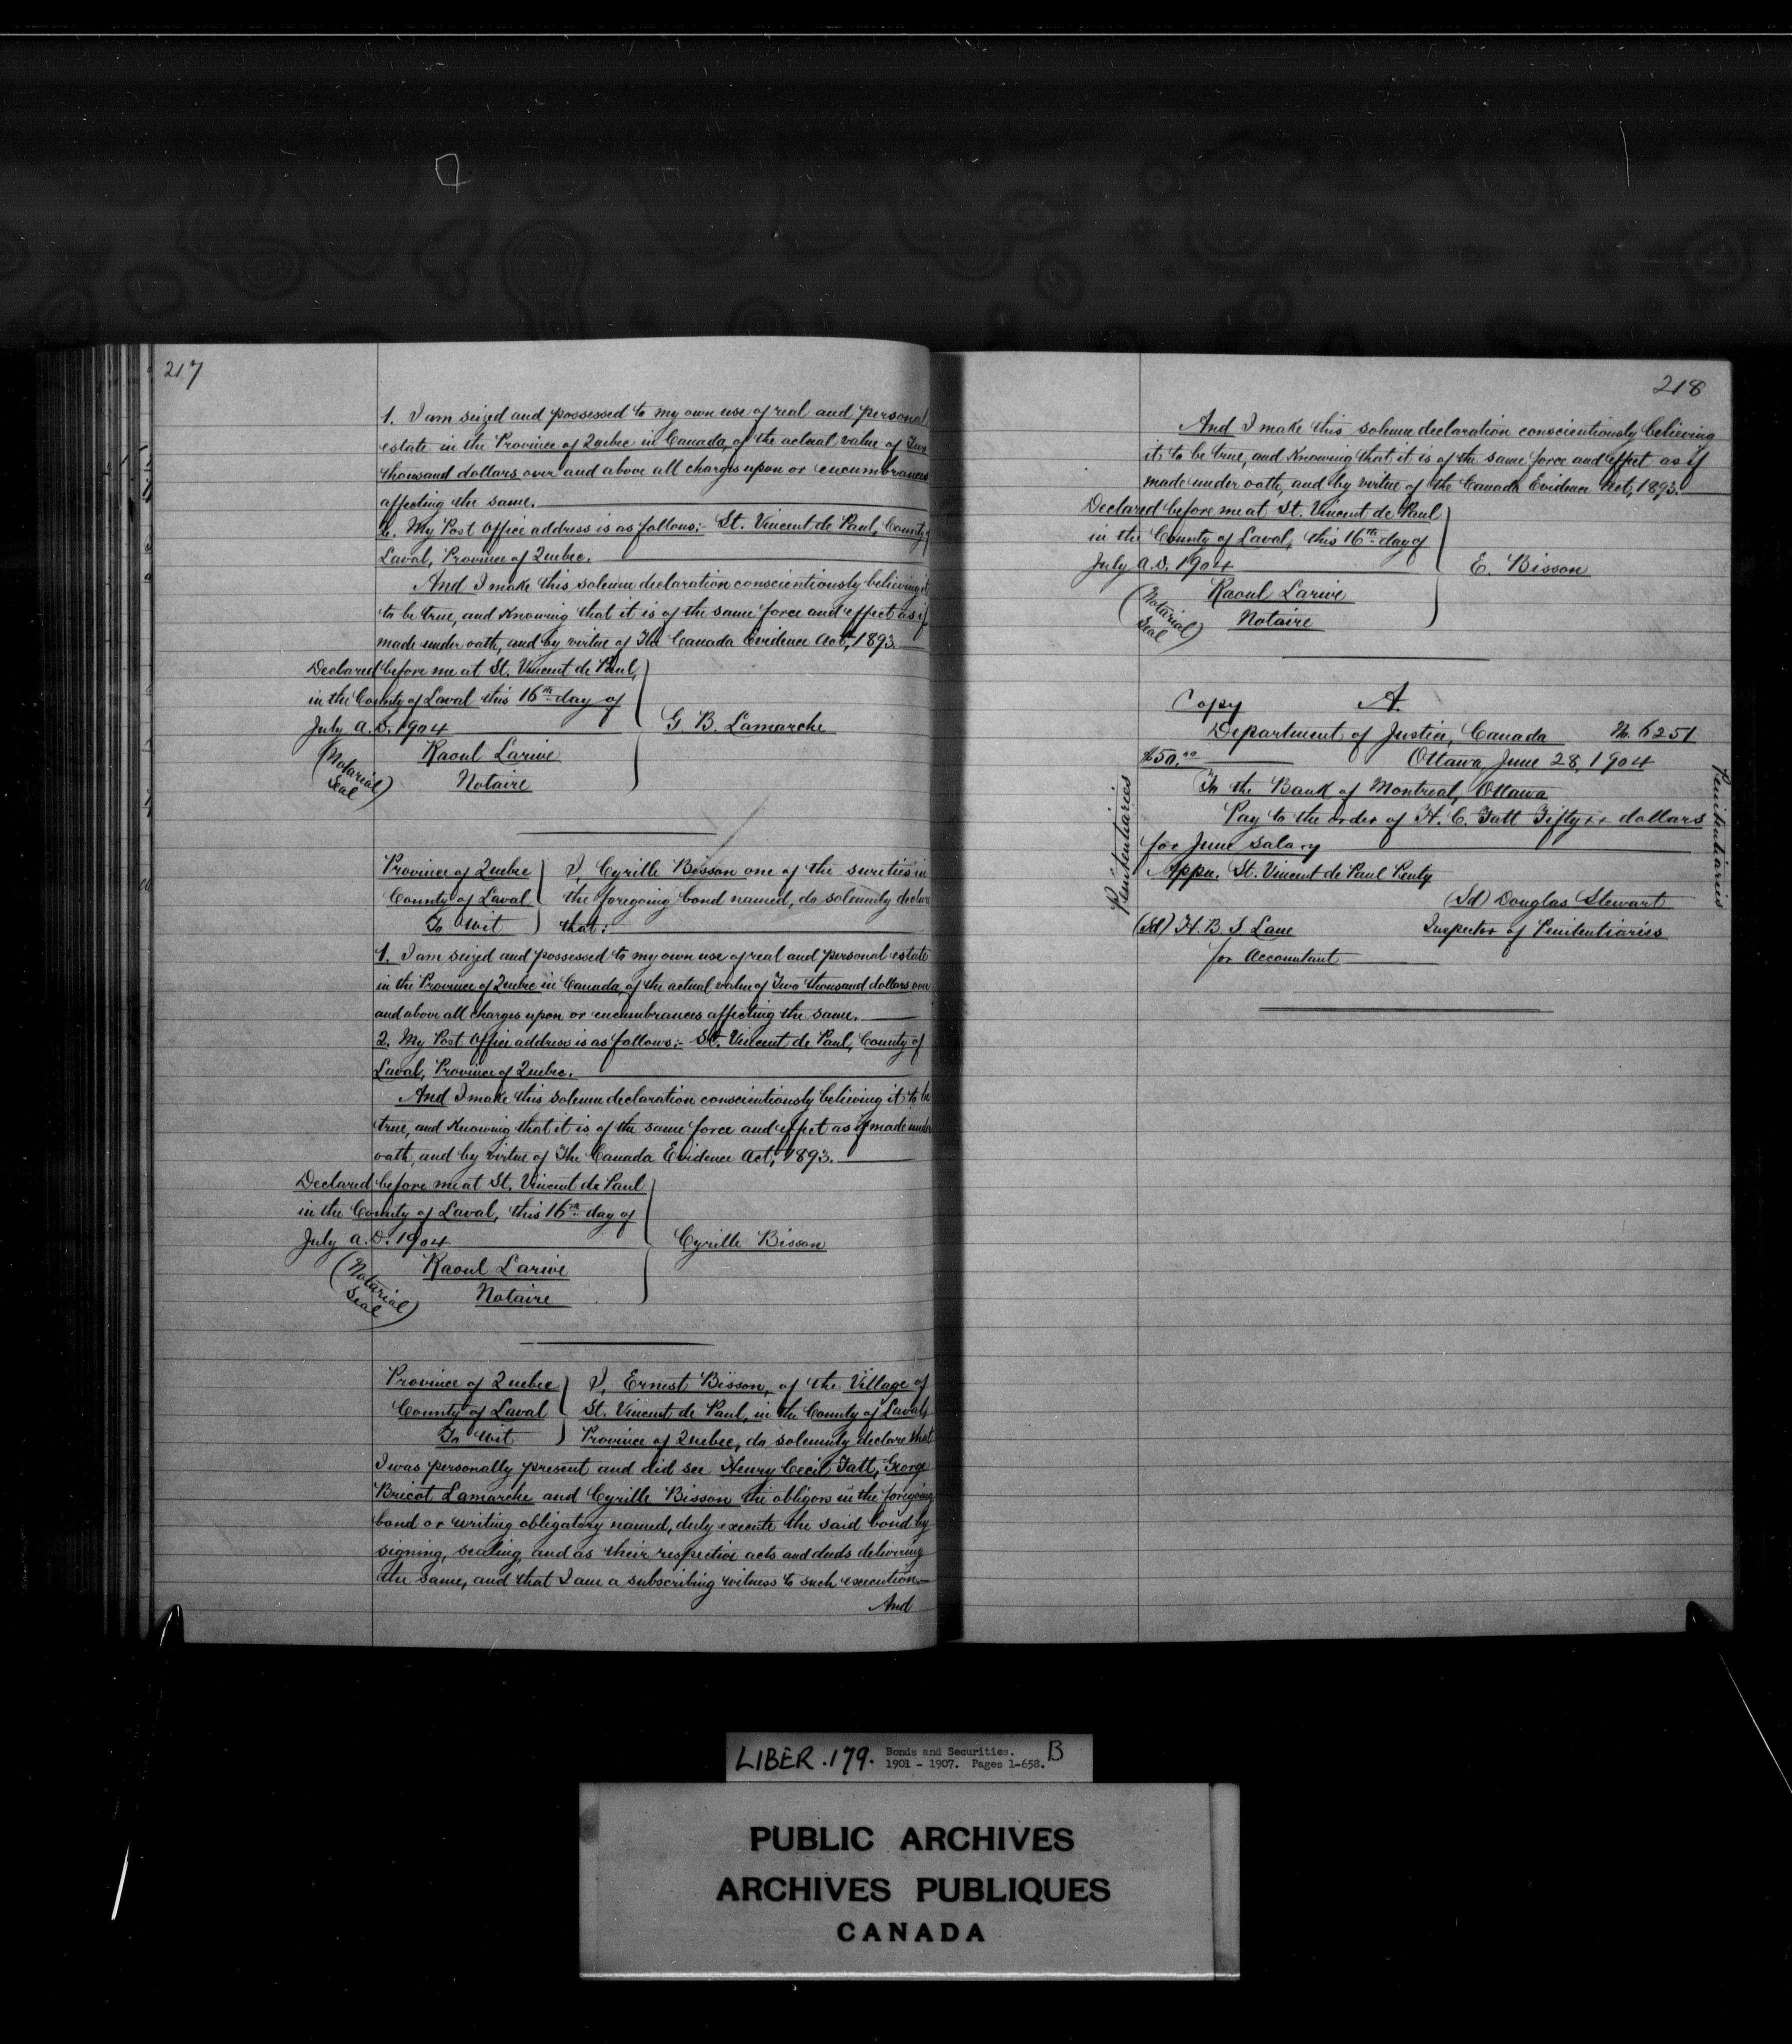 217
1. I am seized and possessed to my own use of real and personal
estate in the Province of Quebec in Canada, of the actual value of Two
thousand dollars over and above all charges upon or encumbrances
affecting the same.
2. My Post Office address is as follows:- St. Vincent de Paul, County of
Laval, Province of Quebec.
And I make this solemn declaration conscientiously believing it
to be true, and Knowing that it is of the same force and effect as if
made under oath, and by virtue of The Canada Evidence Act, 1893.
Declared before me at St. Vincent de Paul,
in the County of Laval this 16th day of
July A.D. 1904
G. B. Lamarche
Raoul Larive
Notaire
(Notarial
Seal)
Province of Quebec
County of Laval
To wit
I, Cyrille Bisson one of the sureties in
the foregoing bond named, do solemnly declare
that:
1. I am seized and possessed to my own use of real and personal estate
in the Province of Quebec in Canada, of the actual value of Two thousand dollars over
and above all charges upon or encumbrances affecting the same.
2. My Post Office address is as follows:- St. Vincent de Paul, County of
Laval, Province of Quebec.
And I make this solemn declaration conscientiously believing it to be
true, and Knowing that it is of the same force and effect as if made under
oath, and by virtue of The Canada Evidence Act, 1893.
Declared before me at St. Vincent de Paul
in the County of Laval, this 16th day of
July A.D. 1904
Cyrille Bisson
Raoul Larive
Notaire
(Notarial
Seal)
Province of Quebec
County of Laval
To wit
I, Ernest Bisson, of the Village of
St. Vincent de Paul, in the County of Laval,
Province of Quebec, do solemnly declare that
I was personally present and did see Henry Cecil Fatt, George
Bricot Lamarche and Cyrille Bisson the obligors in the foregoing
bond or writing obligatory named, duly execute the said bond by
signing, sealing, and as their respective acts and deeds delivering
the same, and that I am a subscribing witness to such execution.
And
218
And I make this solemn declaration conscientiously believing
it to be true, and Knowing that it is of the same force and effect as if
made under oath, and by virtue of the Canada Evidence Act, 1893.
Declared before me at St. Vincent de Paul
in the County of Laval, this 16th day of
July A.D. 1904
E. Bisson
Raoul Larive
Notaire
(Notarial
Seal)
Copy A.
Department of Justice, Canada No. 6251
$50.00 Ottawa, June 28, 1904
To the Bank of Montreal, Ottawa
Pay to the order of H. C. Fatt Fifty xx dollars
for June salary
Appn. St. Vincent de Paul Penty
(Sd) Douglas Stewart
(Sd) H. B. S Lane Inspector of Penitentiaries
for Accountant
Penitentiaries
Penitentiaries
LIBER .179. Bonds and Securities. B
1901 - 1907. Pages 1-658.
PUBLIC ARCHIVES
ARCHIVES PUBLIQUES
CANADA